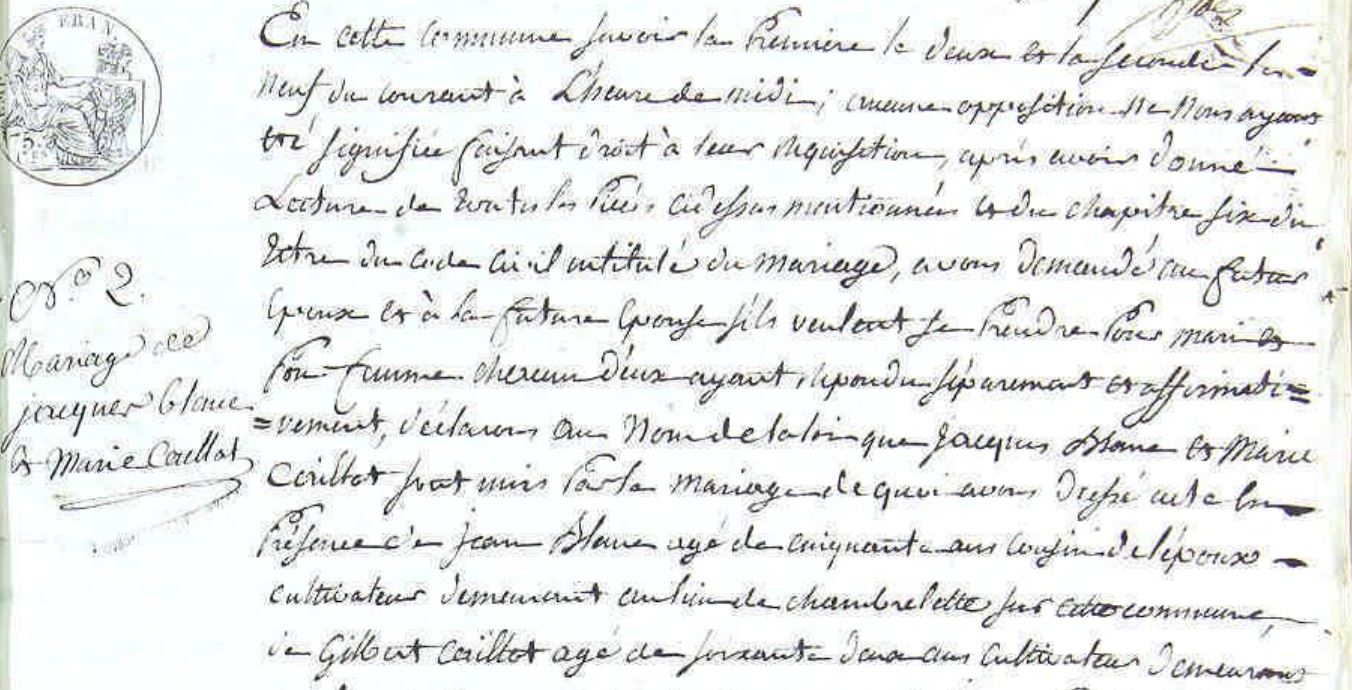 FRAN
N.º 2.
Mariage de
jacques blanc
et Marie Caillot
En cette commune savoir la Premiere le deux et la seconde le
neuf du courant à L'heure de midi; aucune opposition ne Nous ayant
été signifiée faisant droit à leur requisition, après avoir donné
Lecture de toutes les Pièces cidessus mentionnées et du chapitre six du
titre du code civil intitulé du mariage, avons demandé au futur
Epoux et à la future Epouse s'ils veulent se Prendre Pour mari et
Pour femme chacun d'eux ayant repondu séparement et affirmati=
=vement, déclarons au Nom de la loi que jacques Blanc et Marie
Caillot sont unis Par le mariage de quoi avons dressé acte En
Présence de jean Blanc agé de cinquante ans cousin de l'époux
cultivateur demeurant au lieu de chambrelette sur cette commune,
de Gilbert Caillot agé de soixante deux ans Cultivateur demeurant